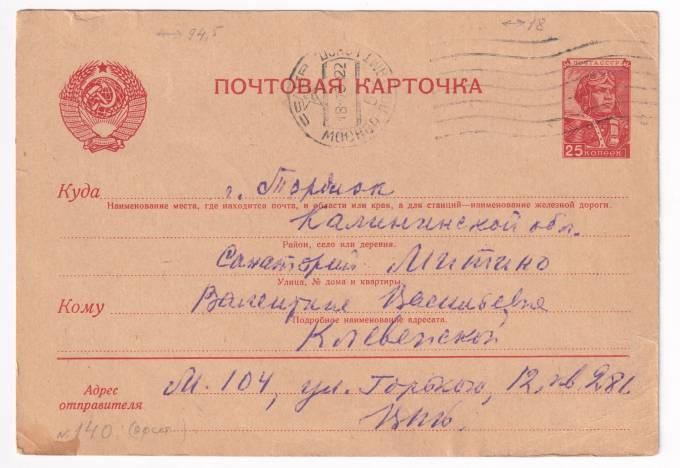 94,5
18
МОСКВА
ПОЧТОВАЯ КАРТОЧКА
ПОЧТА СССР
25 КОПЕЕК
Куда г. Торжок
Наименование места, где находится почта, и области или края, а для станций—наименование железной дороги.
Калининской обл.
Район, село или деревня.
Санаторий Митино
Улица, № дома и квартиры.
Кому Валентине Васильевне
Подробное наименование адресата.
Клевенской
Адрес отправителя
М. 104, ул. Горького, 12, кв 281.
№ 140.